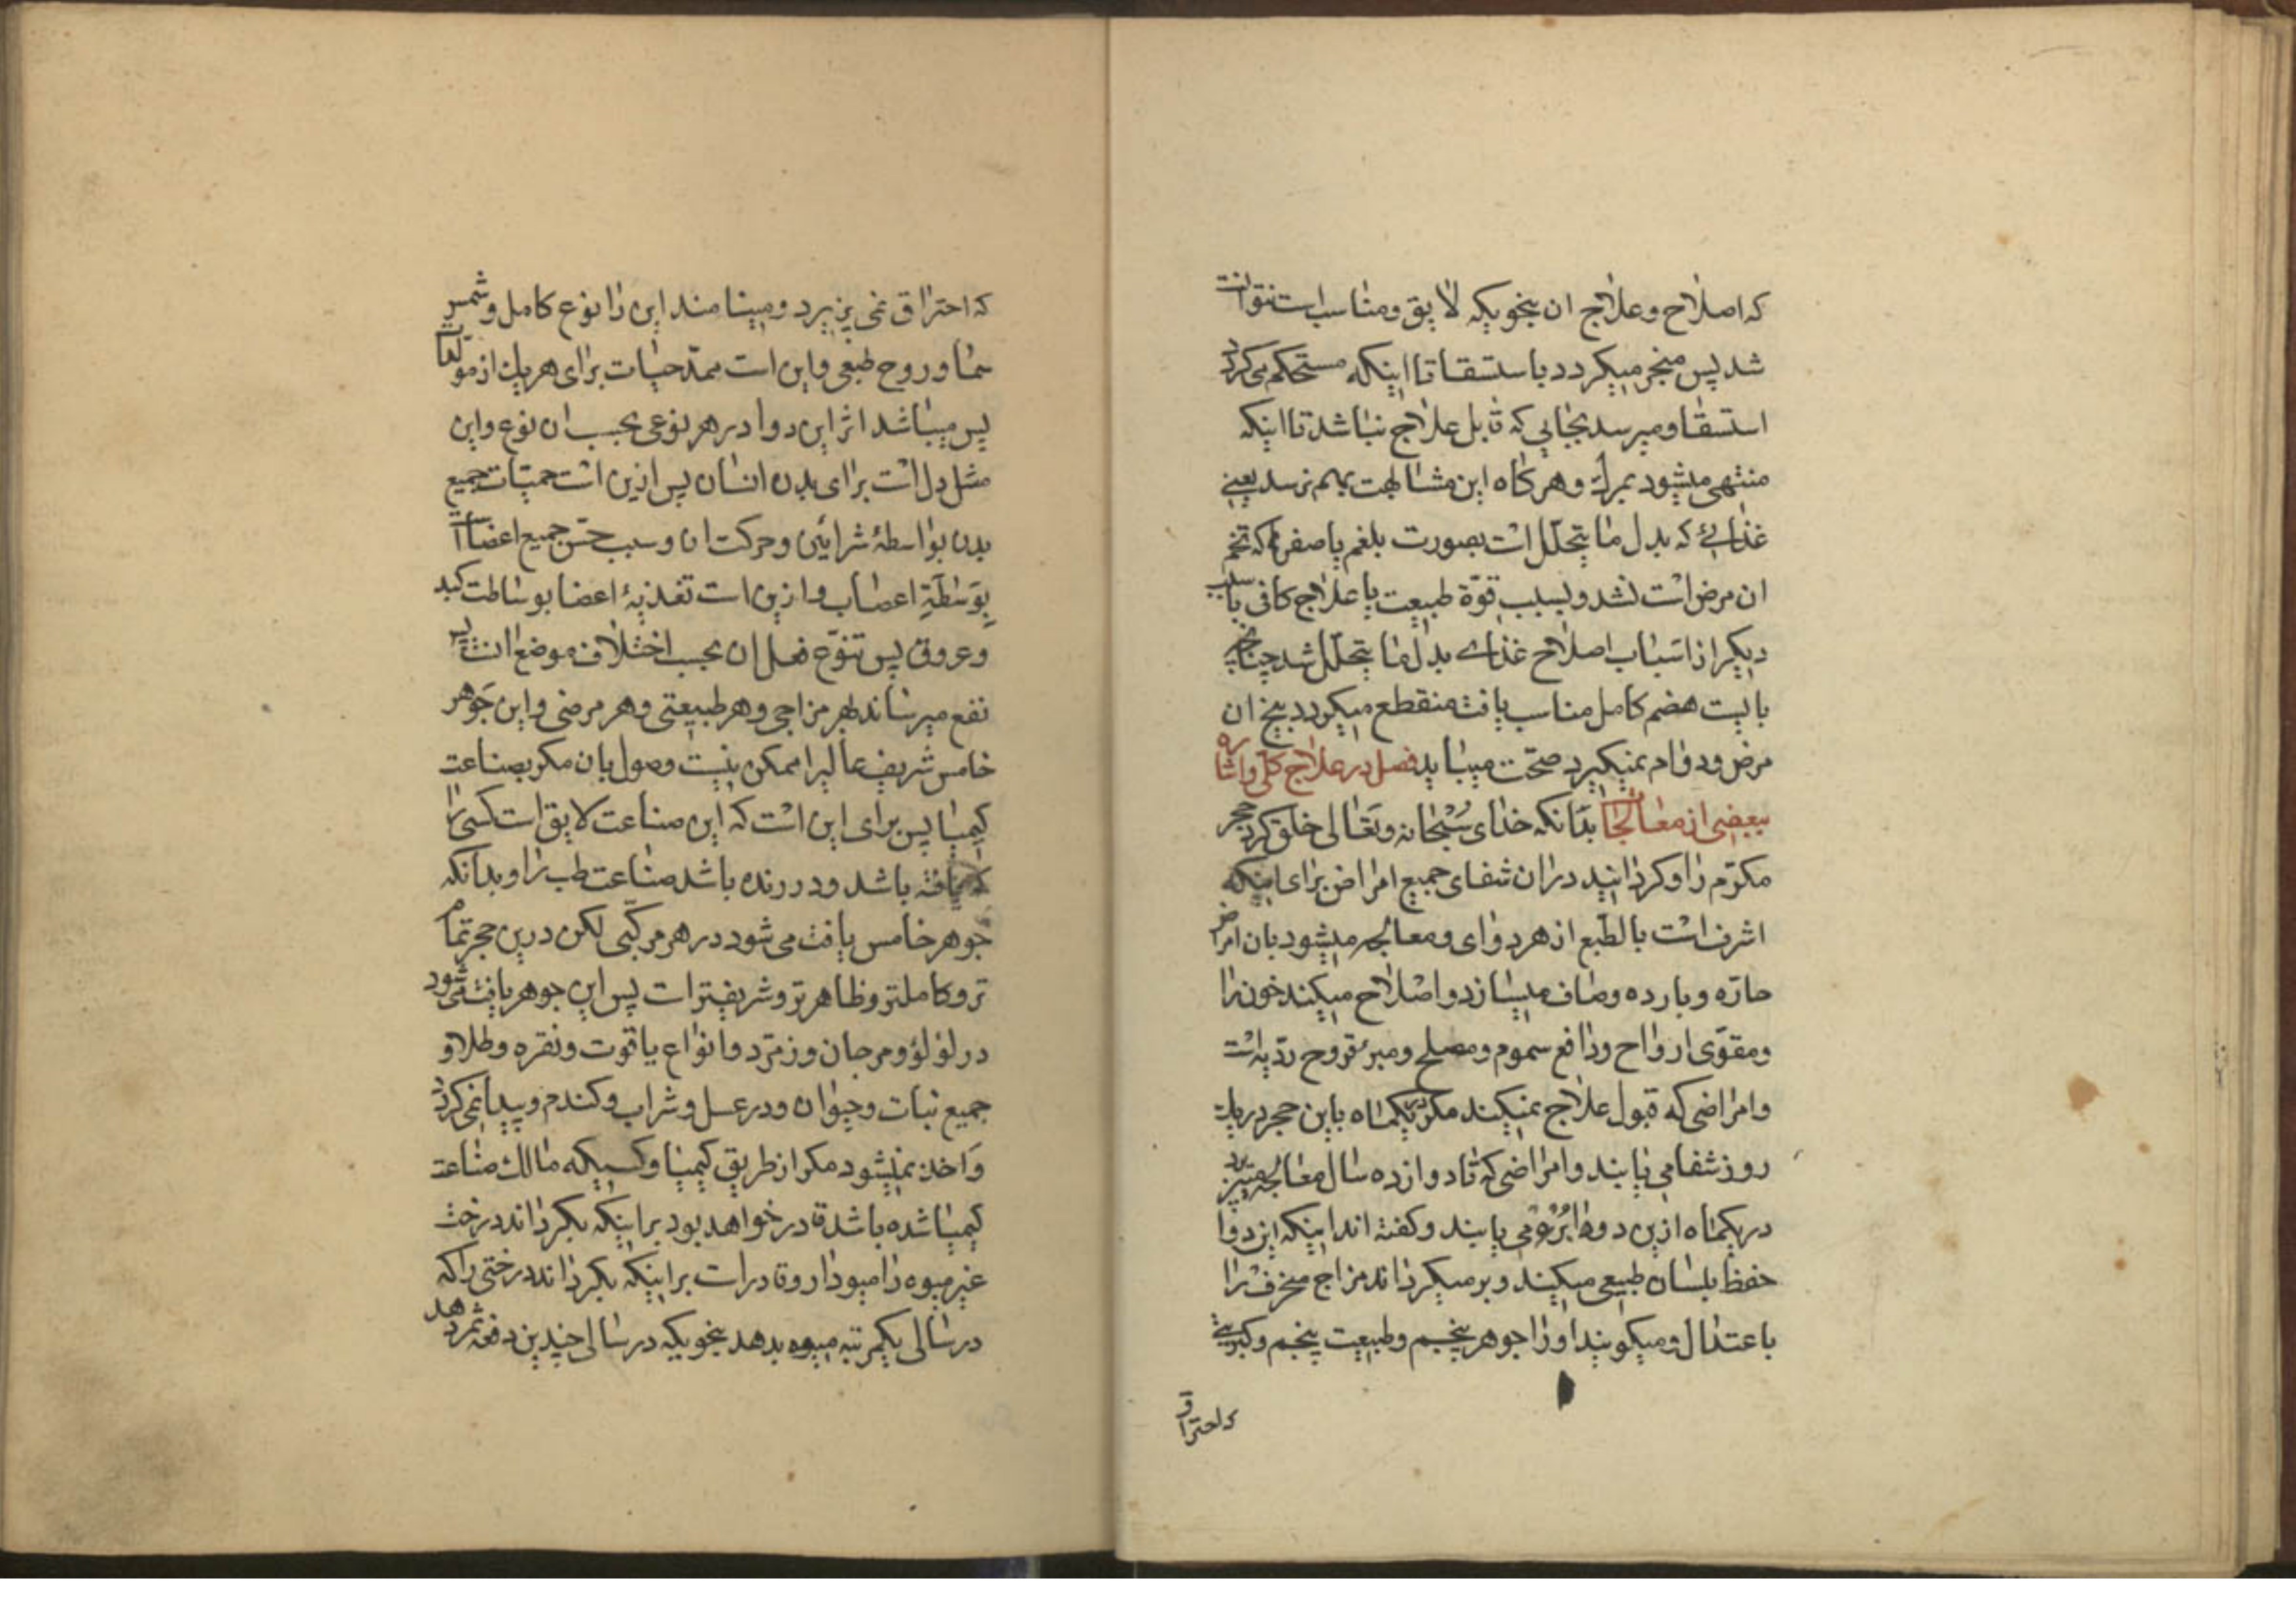 که اصلاح و علاج ان بنحویکه لایق و مناسب است نتوانست
شد پس منجر میکردد باستسقا تا اینکه مستحکم می کردد
استسقا و میرسد بجایی که قابل علاج نباشد تا اینکه
منتهی میشود بمرك و هر کاه این مشابهت بهم نرسد یعنی
غذائی که بدل ما یتحلل است بصورت بلغم یا صفرا که تخم
ان مرض است نشد و بسبب قوّة طبیعت یا علاج کافی یا سبب
دیکر از اسباب اصلاح غذای بدل ما یتحلّل شد چنانچه
بایست هضم کامل مناسب یافت منقطع میکردد بیخ ان
مرض و دوام نمیکیرد صحّت میباید فصل در علاج کلّی و اشاره
ببعضی از معالجات بدانکه خدای سُبْحانه و تَعالی خلق کرد حجر
مکرّم را و کردانید دران شفای جمیع امراض برای اینکه
اشرف است بالطّبع از هر دوای و معالجه میشود بان امراض
حارّه و بارده و صاف میسازد و اصلاح میکند خون را
و مقوّی ارواح و دافع سموم و مصلح و مبرء قروح ردّیه است
و امراضی که قبول علاج نمیکند مکر در یکماه باین حجر در یك
روز شفا می یابند و امراضی که تا دوازده سال معالجه
در یکماه ازین دوا بُرْء می یابند و کفته اند اینکه این دوا
حفظ بلسان طبیعی میکند و بر میکرداند مزاج منحرف را
باعتدال و میکویند او را جوهر پنجم و طبیعت پنجم و کبریتی
که احتراق
که احتراق نمی پزیرد و مینامند این را نوع کامل و شمس
سما و روح طبعی و این است ممدّ حیات برای هر یك از موالید
پس میباشد اثر این دوا در هر نوعی بحسب ان نوع و این
مثل دل است برای بدن انسان پس ازین است حیات جمیع
بدن بواسطۀ شرائین و حرکت ان و سبب حسّ جمیع اعضا است
بوَسَاطَةِ اعصاب و ازین است تغذیۀ اعضا بوساطت کبد
و عروق پس تنوّع فعل ان بحسب اختلاف موضع است پس
نفع میرساند بهر مزاجی و هر طبیعتی و هر مرضی و این جَوهر
خامس شریف عالیرا ممکن نیست وصول بان مکر بصناعت
کیمیا پس برای این است که این صناعت لایق است کسی را
که یافته باشد و درزنده باشد صناعت طب را و بدانکه
جوهر خامس یافت می شود در هر مرکّبی لکن درین حجر تمام
تر و کاملتر و ظاهر تر و شریفتر است پس این جوهر یافت می شود
در لؤلؤ و مرجان و زمرّد و انواع یاقوت و نقره و طلا و
جمیع نبات و حیوان و در عسل و شراب و کندم و پیدا نمی کردد
وَ اخذ نمیشود مکر از طریق کیمیا و کسیکه مالك صناعت
کیمیا شده باشد قادر خواهد بود بر اینکه بکرداند درخت
غیر میوه را میودار و قادر است بر اینکه بکرداند درختی را که
در سالی یکمرتبه میوه بدهد بنحویکه در سالی چندین دفعه ثمر دهد